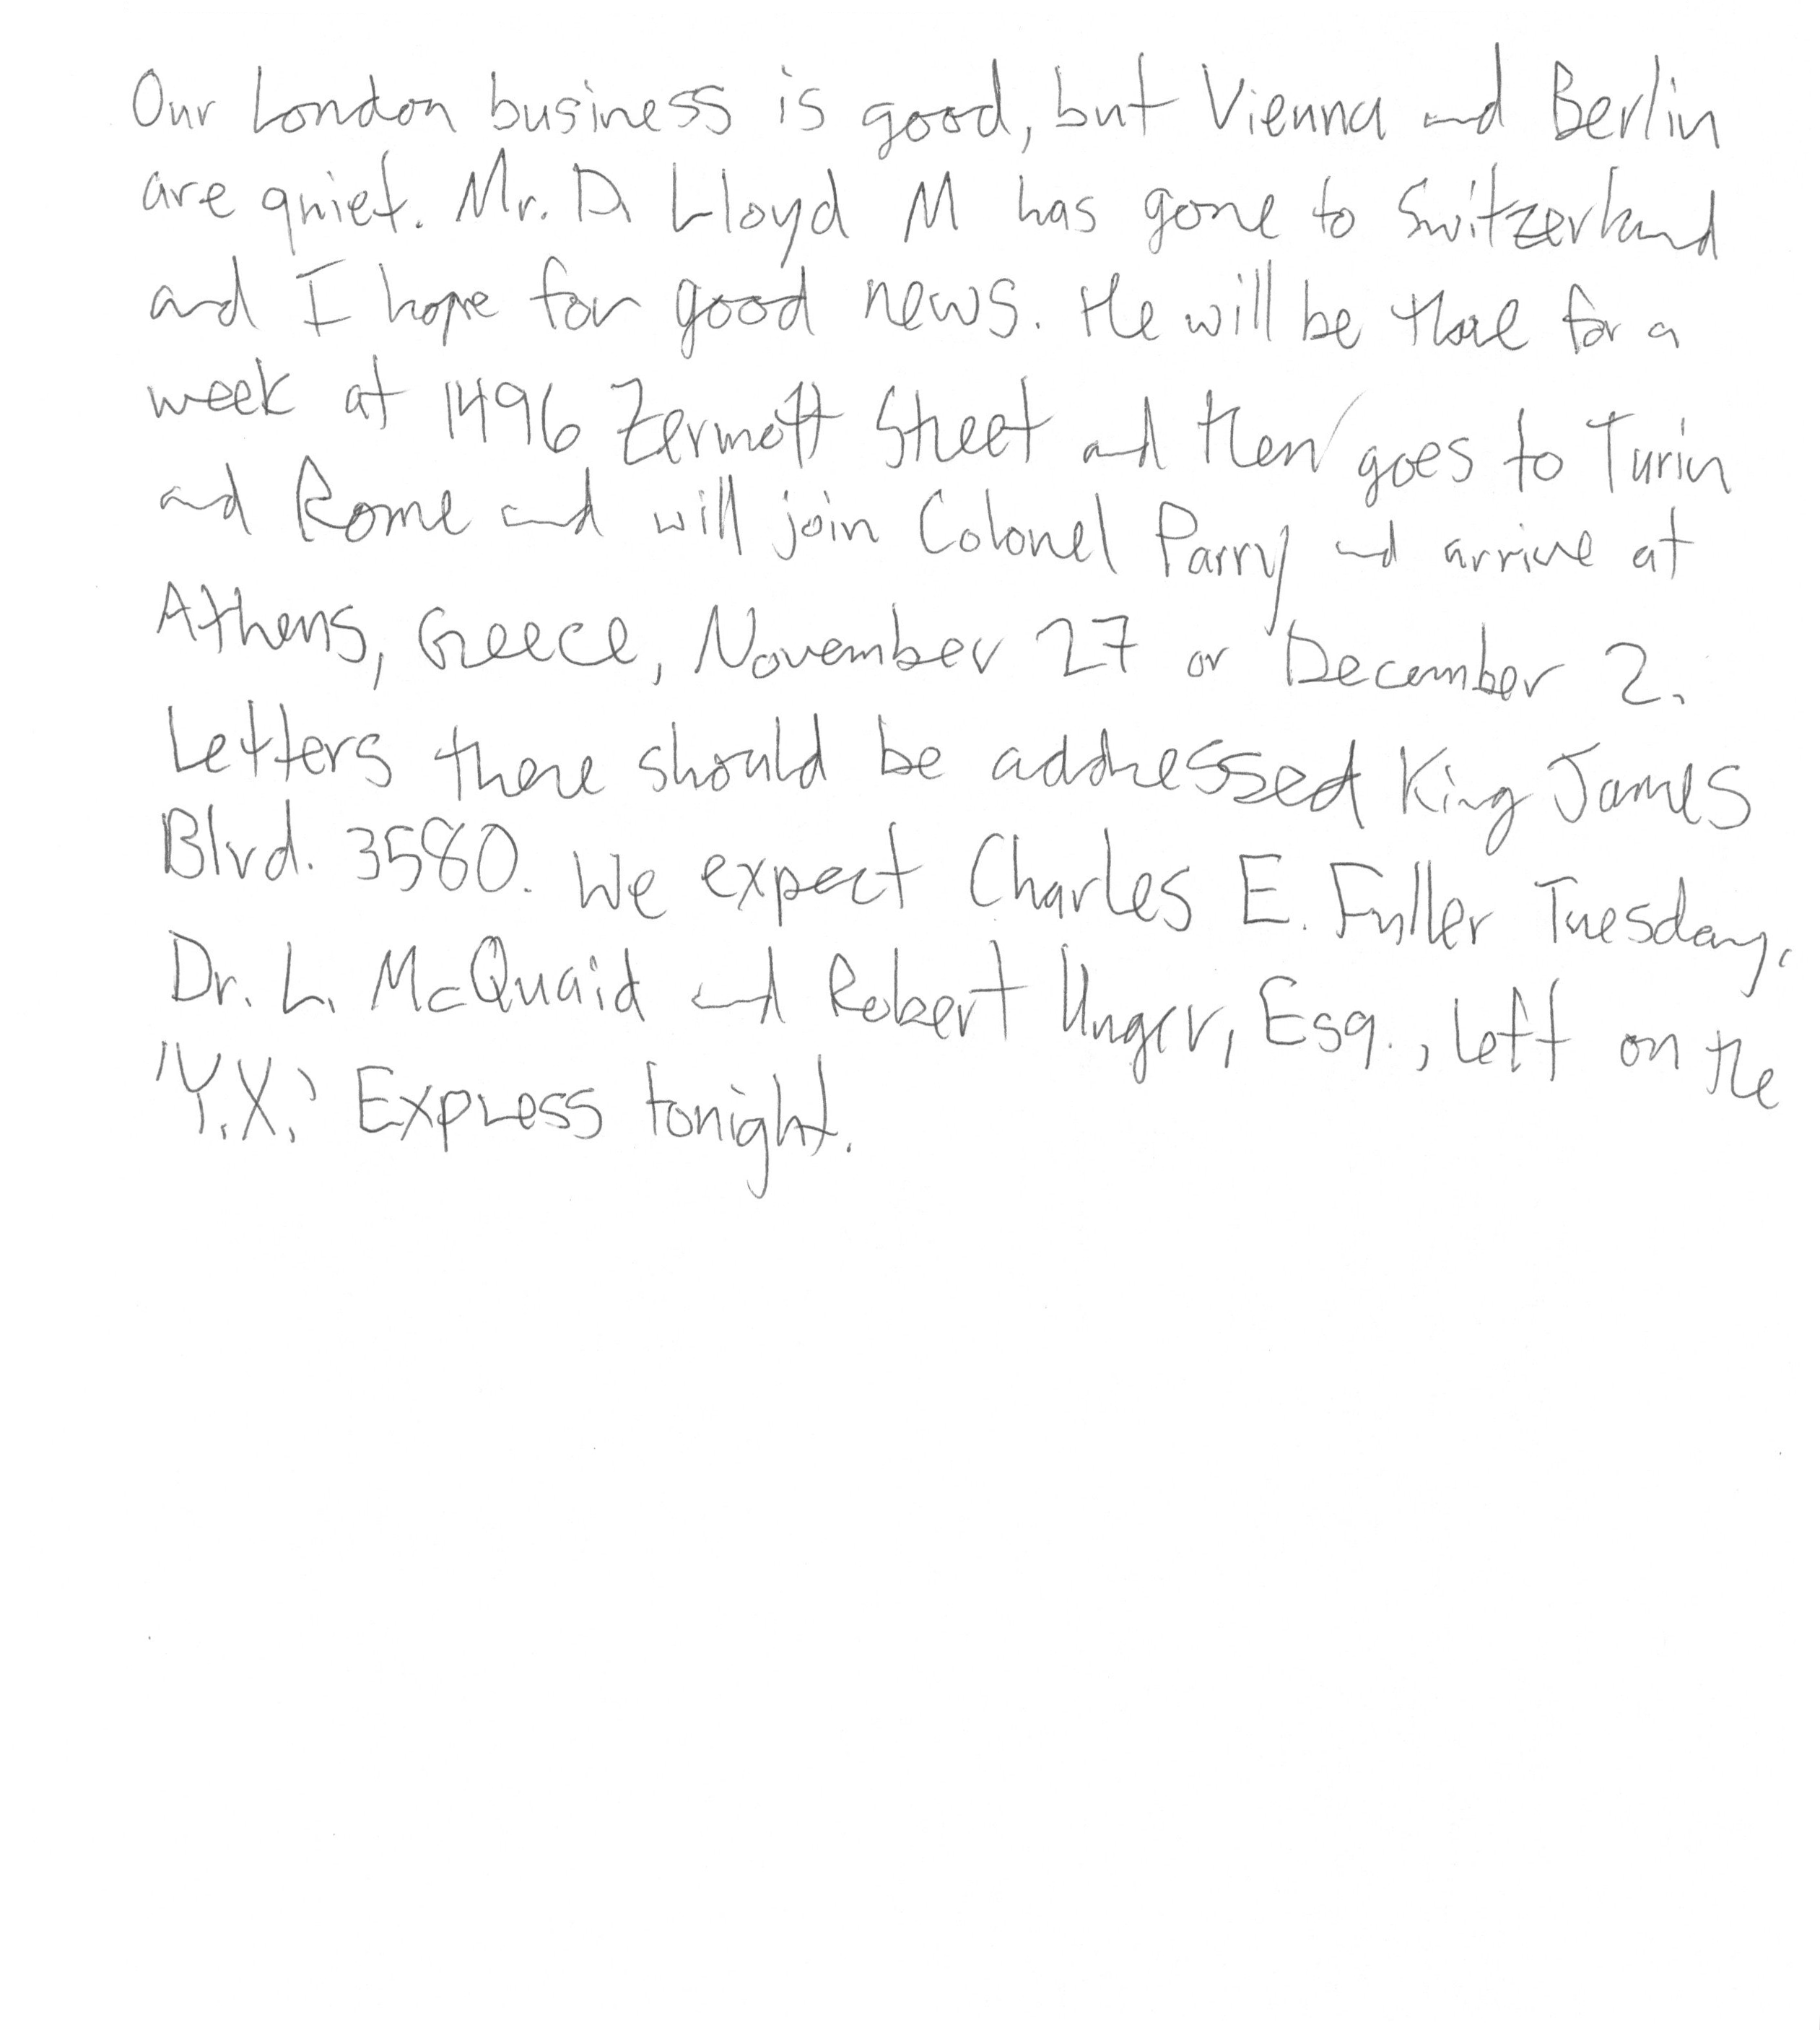 Our London business is good, but Vienna and Berlin
are quiet. Mr. D. Lloyd M has gone to Switzerland
and I hope for good news. He will be there for a
week at 1496 Zermott Street and then goes to Turin
and Rome and will join Colonel Parry and arrive at
Athens, Greece, November 27 or December 2.
Letters there should be addressed King James
Blvd. 3580. We expect Charles E. Fuller Tuesday.
Dr. L. McQuaid and Robert Unger, Esq., left on the
'Y.X.' Express tonight.